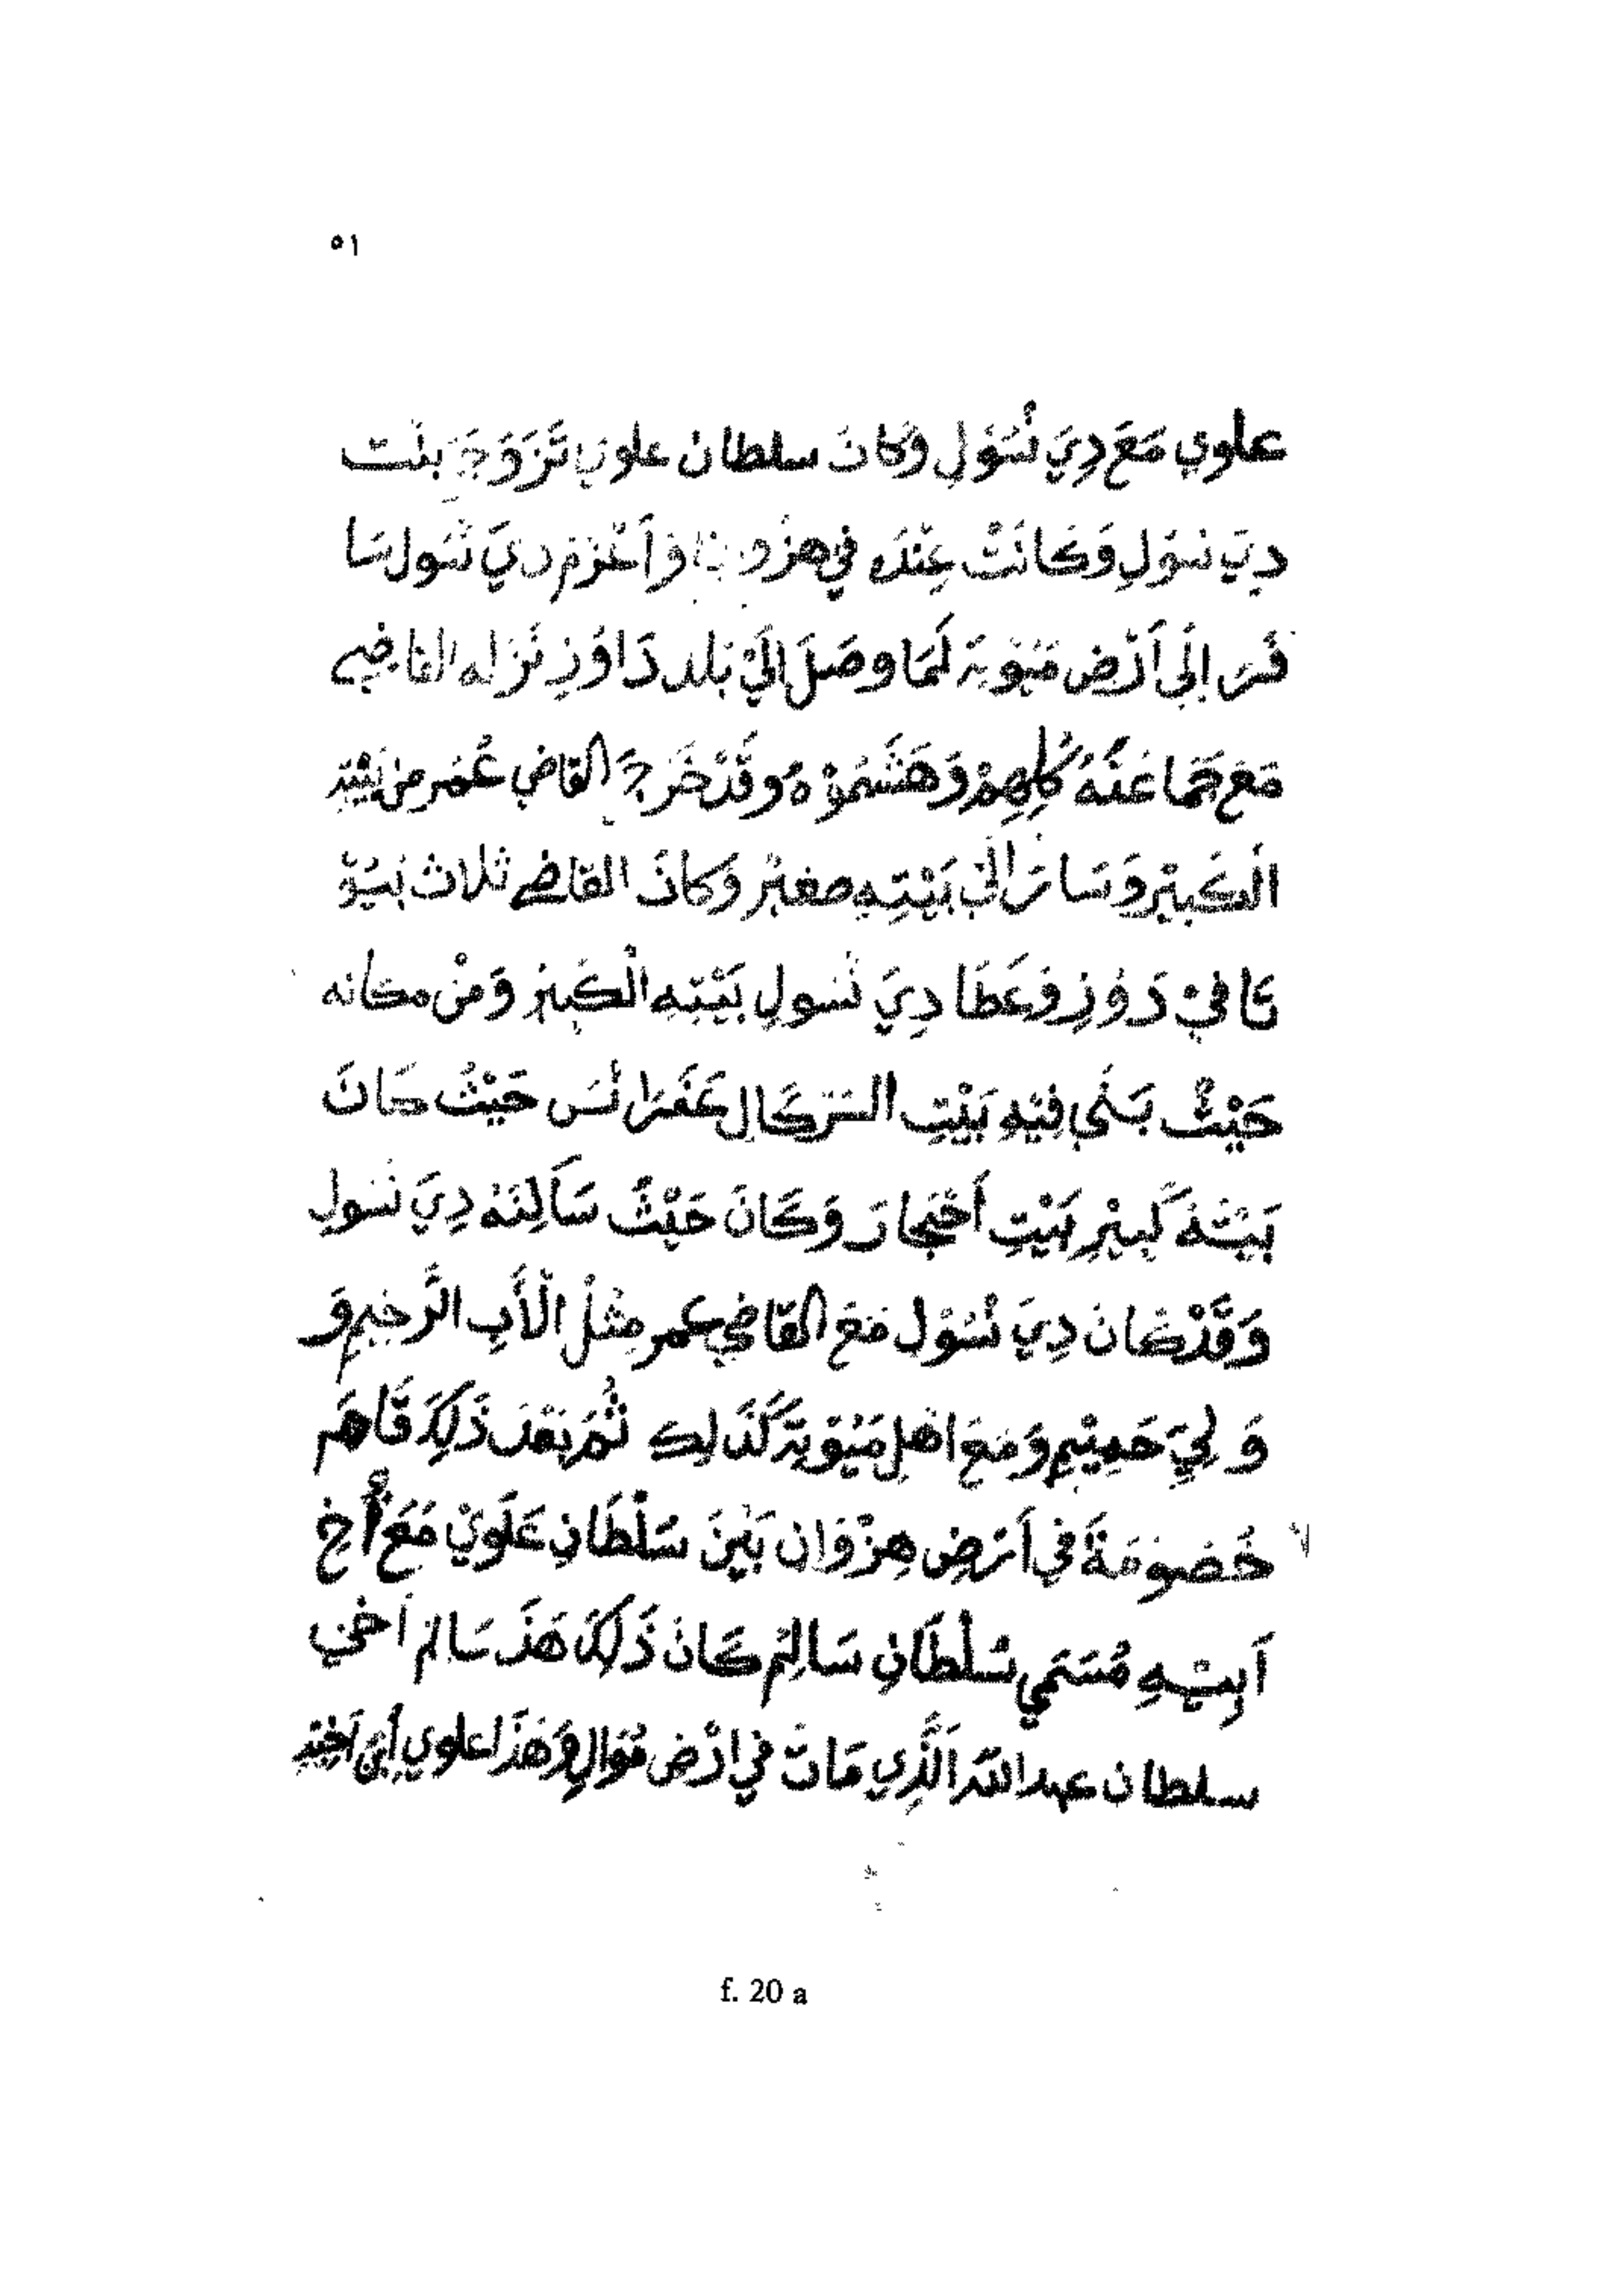 ٥١
علوي مَعَ دِيَ نْسُوْلِ وَكَانَ سلطان علوي تَزَوَّجَ بنْت
دِيَ نسُوْلِ وَكَانَتْ عِنْدَهُ في هزْو وَأَعْزَم دِيَ نْسُول سَا
فَرَ اِلَى اَرْضِ مَيُوْتَةَ لَمَا وصَلَ اِلَيْ بَلد دَاوُزِ نَزَله القاضي
مَعَ جَمَاعَتُهُ كُلِهِمْ وَهَشَمُوْهُ وَقَدْ خَرَجَ القاضي عُمَر مِنْ بَيْتِهِ
اَلْكَبِيْرِ وَسَارَ اِلَيْ بَيْتِهِ صغيْرُ وَكَانَ القاضي ثلاث بُيُوْ
تَا فيْ دَوُزِ وَعَطَا دِيَ نْسُولِ بَيْتِهِ الْكَبِيْرُ وَمْنْ مكانه
حَيْثُ بَنَي فِيْهِ بَيْتِ السَرْكَالِ عَفَرَانْسَ حَيْثُ كَانَ
بَيْتَهُ كَبِيْرِ بَيْتِ اَحْجَارَ وَكَانَ حَيْثُ سَآكِنَهُ دِيَ نْسُولِ
وَقَدْ كَانَ دِيَ نْسُوْلِ مَعَ القاضي عمر مِثْلُ الْأَبِ الرَّحِيْمِ وَ
وَلِيَ حَمِيْمِ وَمَعَ اهْلِ مَيُوْتَةَ كَذَالِك ثُمَ بَعْدَ ذَلِكَ قَاهَم
خُصُوْمَةَ في اَرْضِ هِنْزْوَان بَيْنَ سُلْطَانِ عَلَوِيْ مَعَ أَخِ
اَبِيْهِ مُسَمَي سُلْطَانِ سَالِمْ كَانَ ذَلِكَ هَذَ سَالِمْ اَخي
سلطان عبد اللهَ الَّذِي مَاتَ في ارْض مُوَالِ وَهَذَا علوي اِبْنَ اَخِيْهِ
f. 20 a